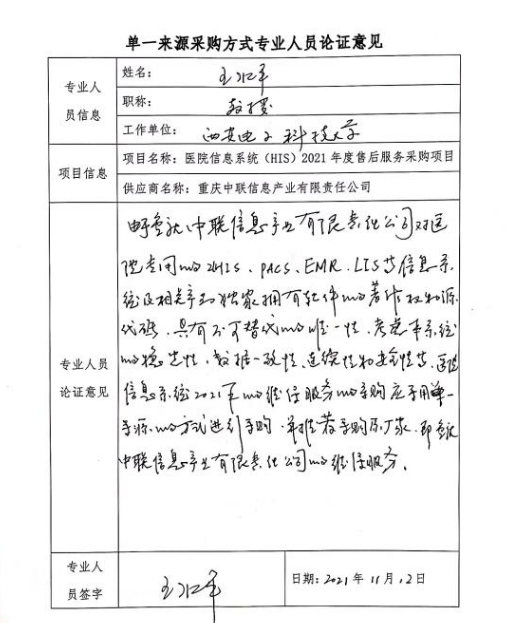 单一来源采购方式专业人员论证意见
专业人
员信息
姓名:
职称: 教授
工作单位: 西安电子科技大学
项目信息
项目名称: 医院信息系统(HIS)2021 年度售后服务采购项目
供应商名称: 重庆中联信息产业有限责任公司
专业人员
论证意见
由于重庆中联信息产业有限责任公司对医
院专用的ZLHIS、PACS、EMR、LIS等信息系
统及相关产品独家拥有软件的著作权和源
代码,具有不可替代的唯一性,考虑本系统
的稳定性,数据一致性,连续性和安全性等,医院
信息系统2021年的维保服务的采购应采用单一
来源的方式进行采购,并推荐采购原厂家,即重庆
中联信息产业有限责任公司的维保服务。
专业人
员签字
日期: 2021 年 11 月 12 日